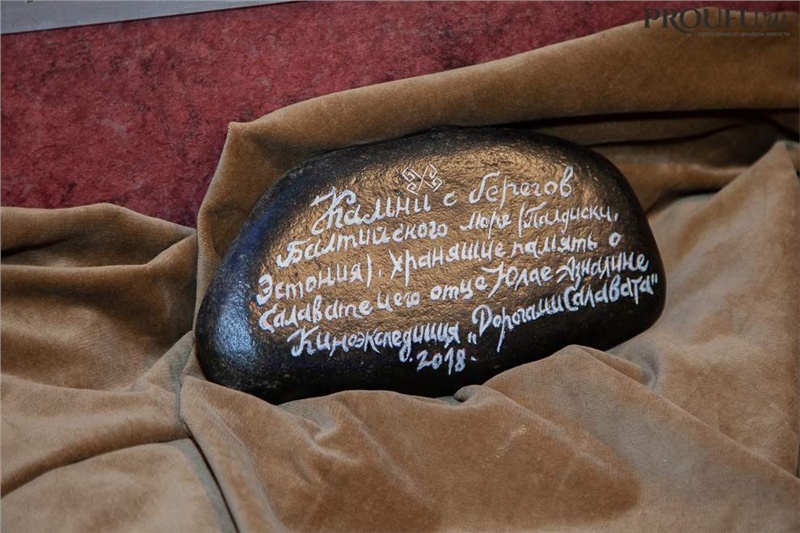 PROUFU.RU
Камни с берегов
Балтийского моря (Палдиски,
Эстония), хранящие память о
Салавате и его отце Юлае Азналине
Киноэкспедиция "Дорогами Салавата"
.2018.